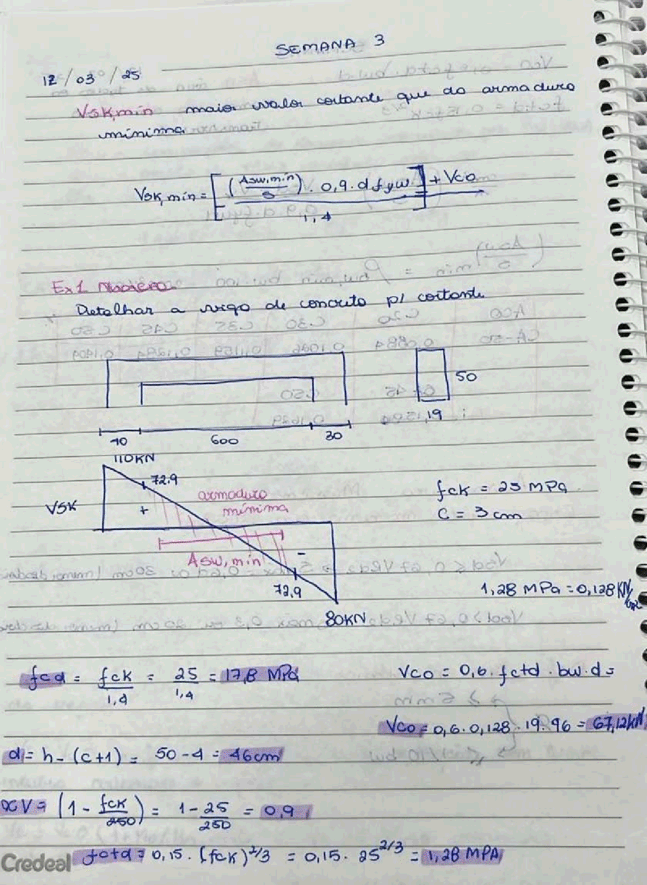 SEMANA 3
12/03/25
Vsk,min maior valor cortante que da armadura
mínima
Vsk,min = [(Asw,min/s) . 0,9 . d fyw / 1,4] + Vco
Ex1
Detalhar a viga de concreto p/ cortante
50
19
600
30
110KN
72.9
armadura
mínima
VSK
+
-
Asw,min
72,9
80KN
fck = 25 MPa
C = 3 cm
1,28 MPa = 0,128 KN/
fcd = fck/1,4 = 25/1,4 = 17,8 MPa
Vco = 0,6 . fctd . bw . d =
Vco = 0,6 . 0,128 . 19 . 96 = 67,12KN
d = h - (c+1) = 50 - 4 = 46cm
αV = (1 - fck/250) = 1 - 25/250 = 0,9
fctd = 0,15 . (fck)^2/3 = 0,15 . 25^2/3 = 1,28 MPA
Credeal